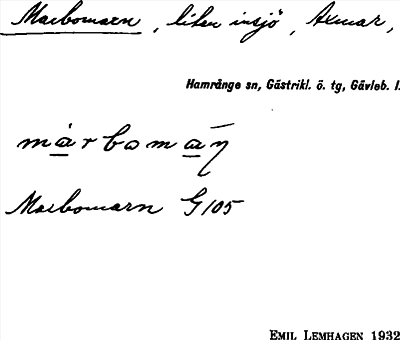 Marbomarn, liten insjö, Axmar,
Hamrånge sn, Gästrikl. ö. tg, Gävleb. l.
Marbomarn G 105
EMIL LEMHAGEN 1932